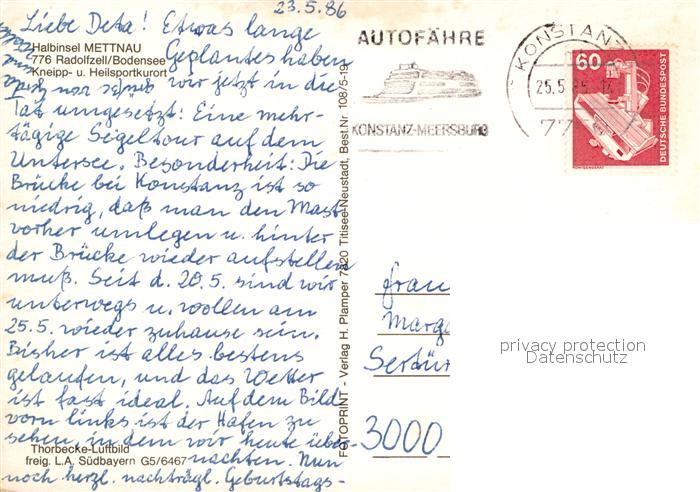 23.5.86
Liebe Deta! Etwas lange
Geplantes haben
wir jetzt in die
Tat umgesetzt: Eine mehr-
tägige Segeltour auf dem
Untersee. Besonderheit: Die
Brücke bei Konstanz ist so
niedrig, daß man den Mast
vorher umlegen u. hinter
der Brücke wieder aufstellen
muß. Seit d. 20.5. sind wir
unterwegs u. wollen am
25.5. wieder zuhause sein.
Bisher ist alles bestens
gelaufen, und das Wetter
ist fast ideal. Auf dem Bild
vorn links ist der Hafen zu
sehen, in dem wir heute über-
nachten. Nun
noch herzl. nachträgl. Geburtstags-
Halbinsel METTNAU
776 Radolfzell/Bodensee
Kneipp- u. Heilsportkurort
Thorbecke-Luftbild
freig. L.A. Südbayern G5/6467
FOTOPRINT - Verlag H. Plamper 7820 Titisee-Neustadt, Best.Nr. 108/5-19
AUTOFÄHRE
KONSTANZ-MEERSBURG
KONSTANZ
25.5.
77
60
DEUTSCHE BUNDESPOST
RÖNTGENGERÄT
Frau
Marg
Sertür
3000
privacy protection
Datenschutz